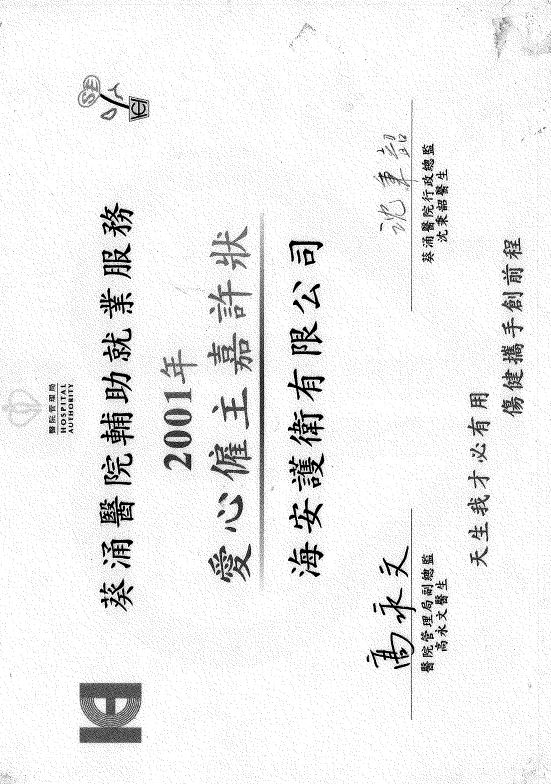 醫院管理局
HOSPITAL
AUTHORITY
SE
葵涌醫院輔助就業服務
2001年
愛心僱主嘉許狀
海安護衛有限公司
高永文
醫院管理局副總監
高永文醫生
沈秉韶
葵涌醫院行政總監
沈秉韶醫生
天生我才必有用
傷健攜手創前程